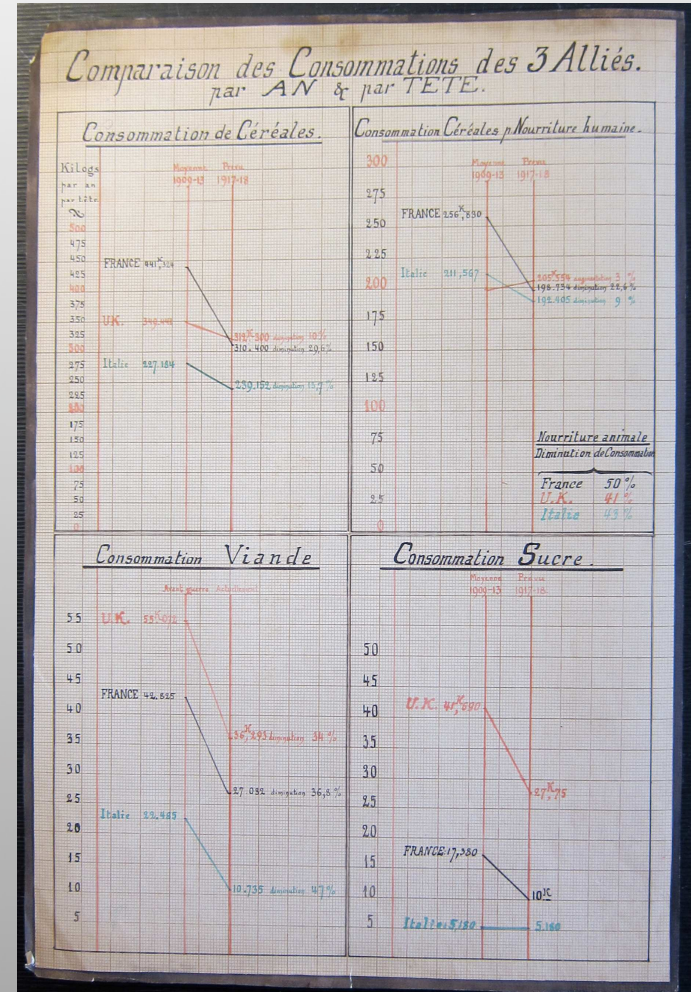 Comparaison des Consommations des 3 Alliés.
par AN & par TETE.
Consommation de Céréales.
Kilogs
par an
par tête
Moyenne Prévu
1909-13 1917-18
500
475
450
425
400
375
350
325
300
275
250
225
200
175
150
125
100
75
50
25
0
FRANCE
U.K.
Italie
312K500 diminution 10%
310.400 diminution 29,6%
239.152 diminution
Consommation Céréales p. Nourriture humaine.
Moyenne Prévu
1909-13 1917-18
300
275
250
225
200
175
150
125
100
75
50
25
0
FRANCE 256K,830
Italie 211,567
205K554 3 %
198.734 diminution 22,6%
192.405 diminution 9 %
Nourriture animale
Diminution de Consommation
France 50%
U.K. 41%
Italie 43%
Consommation Viande
Avant guerre Actuellement
55
50
45
40
35
30
25
20
15
10
5
U.K. 55K072
FRANCE 42.825
Italie 22.465
36K293 diminution 34 %
27 032 diminution 36,8 %
10.735 diminution 47%
Consommation Sucre.
Moyenne Prévu
1909-13 1917-18
50
45
40
35
30
25
20
15
10
5
U.K. 41K,590
FRANCE 17,380
Italie 5,150
27K,75
10K
5.160